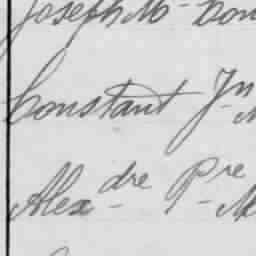 Joseph M-
Constant Jn-
Alexdre Pre-M